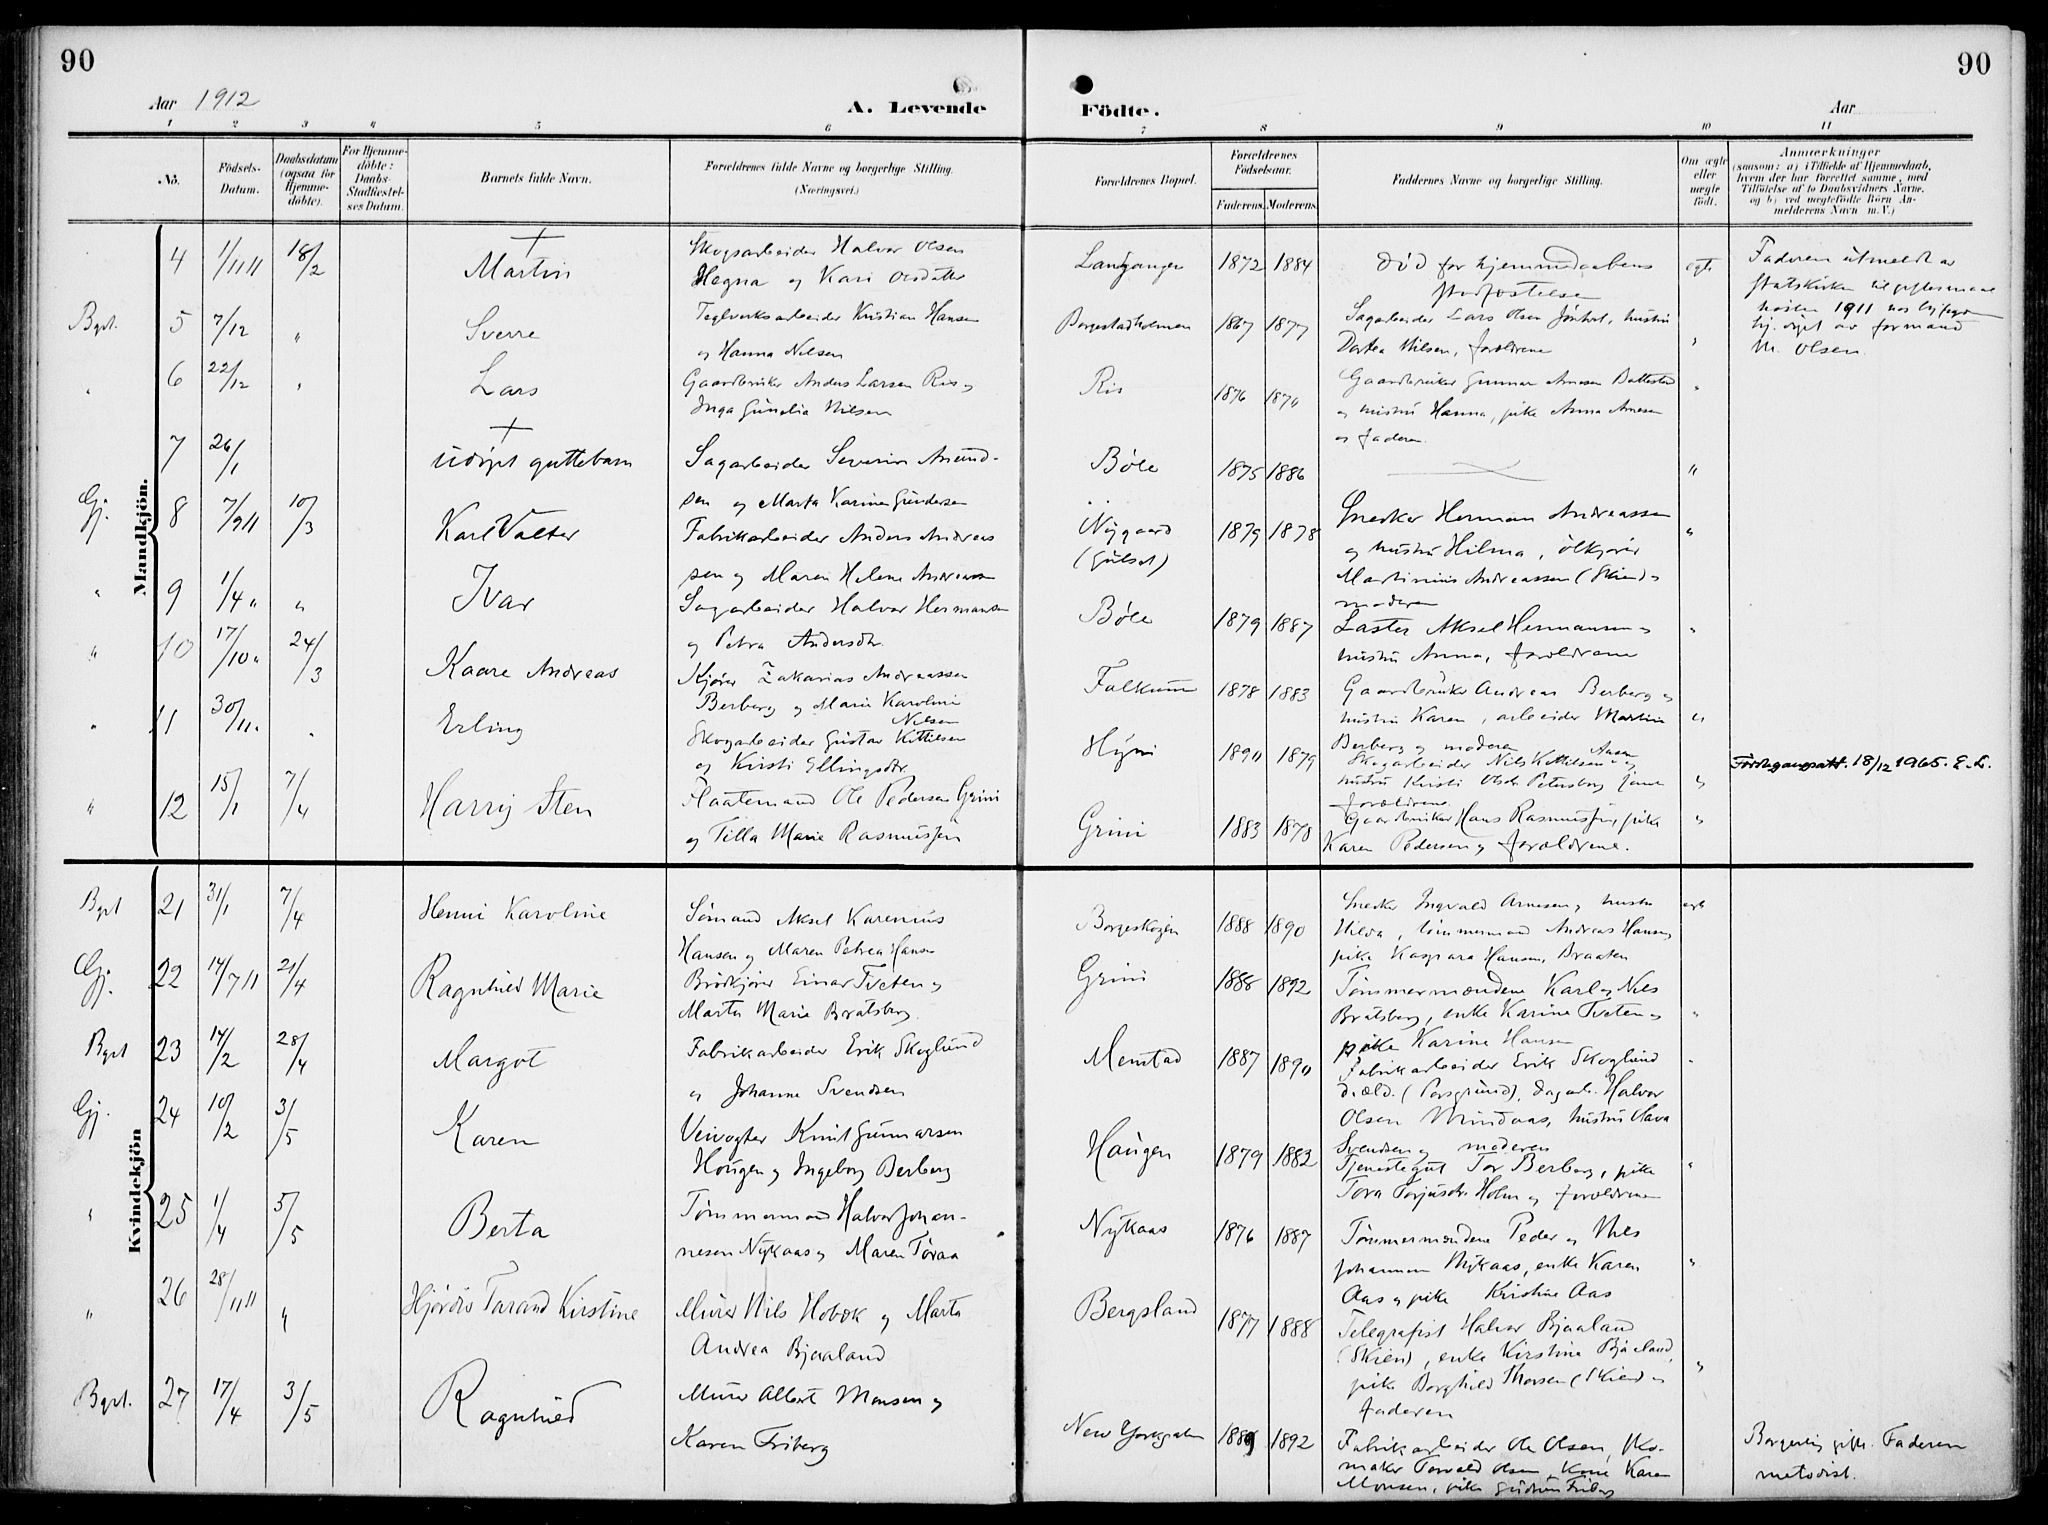 90
90
Aar 1912
A. Levende
Födte.
Aar
1 2 3 4 5 6 7 8 9 10 11
No.
Födsels-Datum.
Daabsdatum (ogsaa for Hjemme-döbte).
For Hjemme-döbte: Daabs-Stadfæstel-ses Datum.
Barnets fulde Navn.
Forældrenes fulde Navne og borgerlige Stilling.
(Næringsvei.)
Forældrenes Bopæl.
Forældrenes Födselsaar.
Faderens. Moderens.
Faddernes Navne og borgerlige Stilling.
Om ægte eller uægte født.
Anmærkninger
(saasom: a) i Tilfælde af Hjemmedaab, hvem der har forrettet samme, med Tilföielse af to Daabsvidners Navne. og b) ved uægtefödte Börn An-melderens Navn m. V.)
Mandkjön.
4 1/11 11 18/2 Martin
Skogsarbeider Halvor Olsen
Hegna og Kari Olsdatter
Langangen 1872 1884
Død før hjemmedaabens
stadfæstelsen
ægte
Faderen utmeldt av
statskirken
høsten 1911
av formand
M. Olsen.
Bgst. 5 7/12 " Sverre
Teglverksarbeider Kristian Hansen
og Hanna Nilsen
Borgestadholmen 1867 1877
Sagarbeider Lars Olsen hustru
Dortea Nilsen, forældrene "
" 6 22/12 " Lars
Gaardbruker Anders Larsen Ris og
Inga Gunelia Nilsen
Ris 1876 1870
Gaardbruker Gunnar Arnesen
og hustru Hanna, pike Anna Arnesen
og faderen. "
7 26/1 udøpt guttebarn
Sagarbeider Severin Amund-
sen og Marta Karine Gundersen
Bøle 1875 1886 "
Gj. 8 7/9 11 10/3 Karl Valter
Fabrikarbeider Anders Andreas
sen og Maren Helene Andreassen
Nygaard
(Gulset) 1879 1878
Snedker Herman Andreassen
og hustru Hilma, ølkjører
Martinius Andreassen (Skien) og
moderen "
" 9 1/4 " " Ivar
Sagarbeider Halvor Hermansen
og Petra Andersdtr.
Bøle 1879 1887
Laster Aksel Hermansen og
hustru Anna, forældrene "
" 10 17/10 " 24/3 Kaare Andreas
Kjører Zakarias Andreassen
Berberg og Marie Karoline
Nilsen
Falkum 1878 1883
Gaardbruker Andreas Berberg og
hustru Karen, arbeider Martin
Berberg og moderen "
" 11 30/11 " " Erling
Skogarbeider Gustav Kittilsen
og Kirsti Ellingsdtr.
Hyni 1890 1879
Skogarbeider Nils Kittilsen og
hustru Kirsti Olsdtr Petersborg
forældrene. "
18/12 1965. E. L.
" 12 15/1 7/4 Harry Sten
Flaatemand Ole Pedersen Grini
og Tilla Marie Rasmussen
Grini 1883 1878
Gaardbruker Hans Rasmussen, pike
Karen Pedersen og forældrene. "
Kvindekjön
Bgst 21 31/1 7/4 Henni Karoline
Sømand Aksel Karenius
Hansen og Maren Petrea Hansen
Borgeskogen 1888 1890
Snedker Ingvald Arnesen og hustru
Hilda, tømmermand Andreas Hansen,
pike Kaspara Hansen, Braaten
ægte
Gj. 22 14/7 11 21/4 Ragnhild Marie
Brødkjører Einar Tveten og
Marta Marie Bratsberg.
Grini 1888 1892
Tømmermændene Karl og Nils
Bratsberg, enke Karine Tveten og
pike Karine Hansen "
Bgst 23 14/2 28/4 Margot
Fabrikarbeider Erik Skoglund
og Johanne Svendsen
Menstad 1887 1890
Fabrikarbeider Erik Skoglund
d.æld. (Porsgrund), dagarb. Halvor
Olsen Mindaas, hustru
Svendsen og moderen "
Gj. 24 10/2 3/5 Karen
Veivogter Knut Gunnarsen
Hougen og Ingeborg Berberg
Haugen 1879 1882
Tjenestegut Tor Berberg, pike
Tora Torjusdtr. Holm og forældrene "
" 25 1/4 5/5 Berta
Tømmermand Halvor Johan-
nesen Nykaas og Maren Toraa
Nykaas 1876 1887
Tømmermændene Peder og Nils
Johannesen Nykaas, enke Karen
Aas og pike Kristine Aas "
" 26 28/11 11 " Hjørdis Tarand Kirstine
Murer Nils Hobæk og Marta
Andrea Bjaaland
Bergsland 1877 1888
Telegrafist Halvor Bjaaland
(Skien), enke Kirstine Bjaaland,
pike Borghild Thorsen (Skien) og
faderen "
Bgst. 27 17/4 3/5 Ragnhild
Murer Albert Monsen og
Karen Friberg
New Yorkgaten 1889 1892
Fabrikarbeider Ole Olsen, sko-
maker Torvald Olsen, Karen
Monsen, pike Gudrun Friberg
Borgerlig gifte. Faderen
metodist.